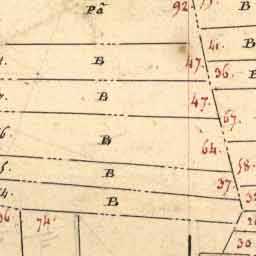 Pâ 92. B
B 41. B
B 47. 36. B
B 47.
67.
B 64.
B 58.
37.
B
74.
30